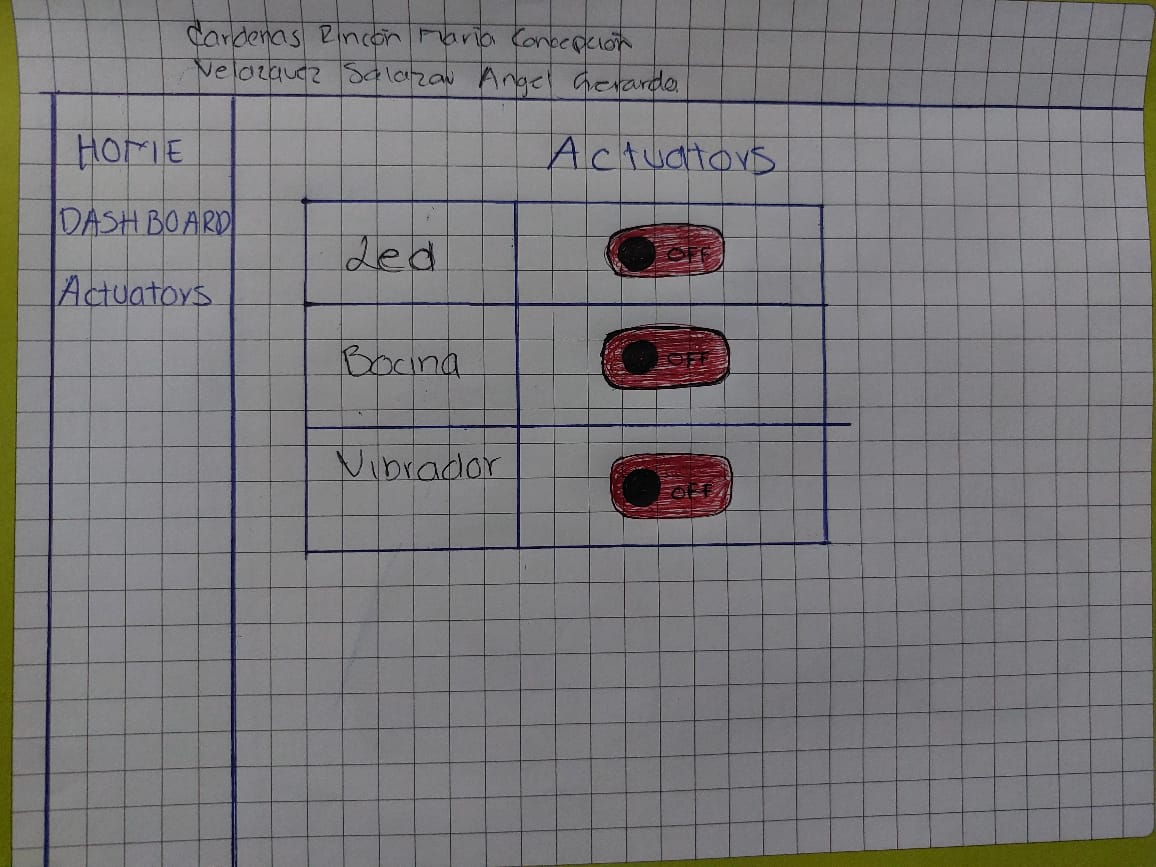 Cardenas Rincón Maria Concepción
Velazquez Salazar Angel Gerardo.
HOME
DASHBOARD
Actuators
Actuators
Led OFF
Bocina OFF
Vibrador OFF